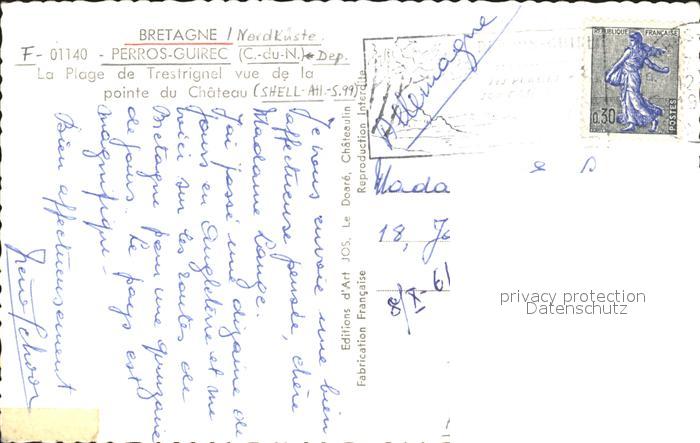 BRETAGNE / Nordküste.
F - 01140 - PERROS-GUIREC (C.-du-N.) Dep.
La Plage de Trestrignel vue de la
pointe du Château (SHELL-Atl-S.99)
Je vous envoie une bien
affectueuse pensée, chère
Madame Lange.
J'ai passé une dizaine de
jours en Angleterre et me
voici sur les routes de
Bretagne pour une quinzaine
de jours. Le pays est
magnifique.
Bien affectueusement
Editions d'Art JOS, Le Doaré, Châteaulin
Reproduction Interdite
Fabrication Française
Allemagne
PERROS-GUIREC
REPUBLIQUE FRANÇAISE
0,30
POSTES
Mada
18, Je
8/X-61
privacy protection
Datenschutz